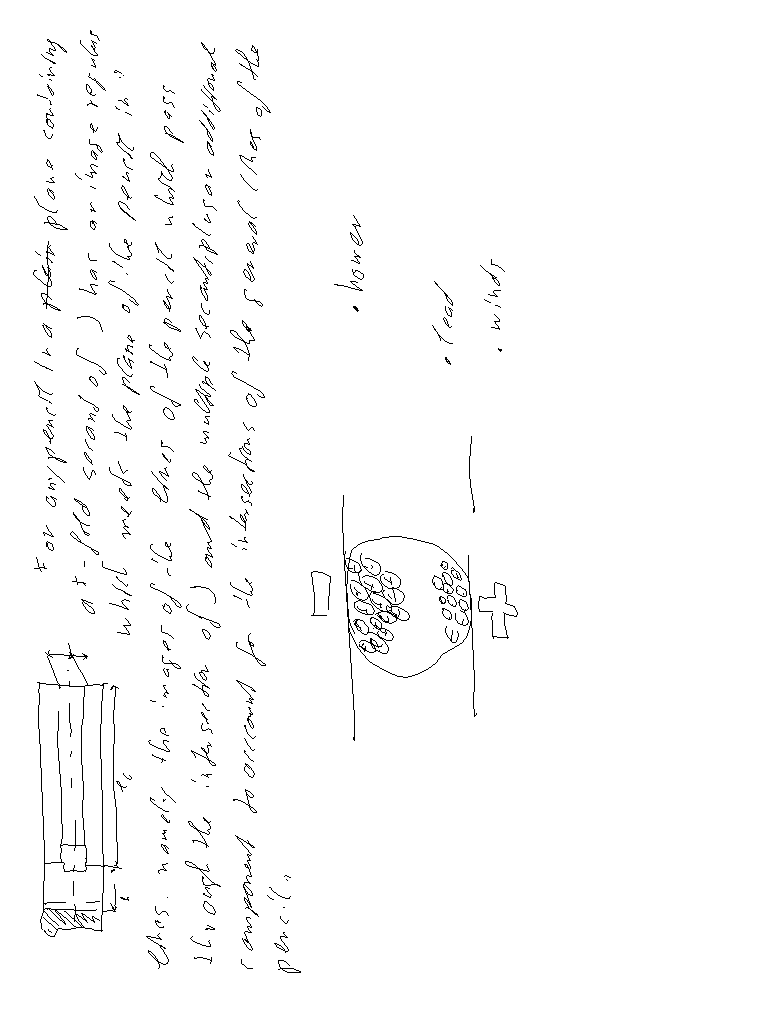 For any pencil in a plain plane containing
a x-fold secand of ) has an image regulus
which meets the plane of the pencil in
lines. namely the images of the lines of the pencil which pass
through the intersection of ) and the multiple secant plus an additional
component to account for the intersections of the general lines of the
pencil.
• homer
• lead
• winds
lc